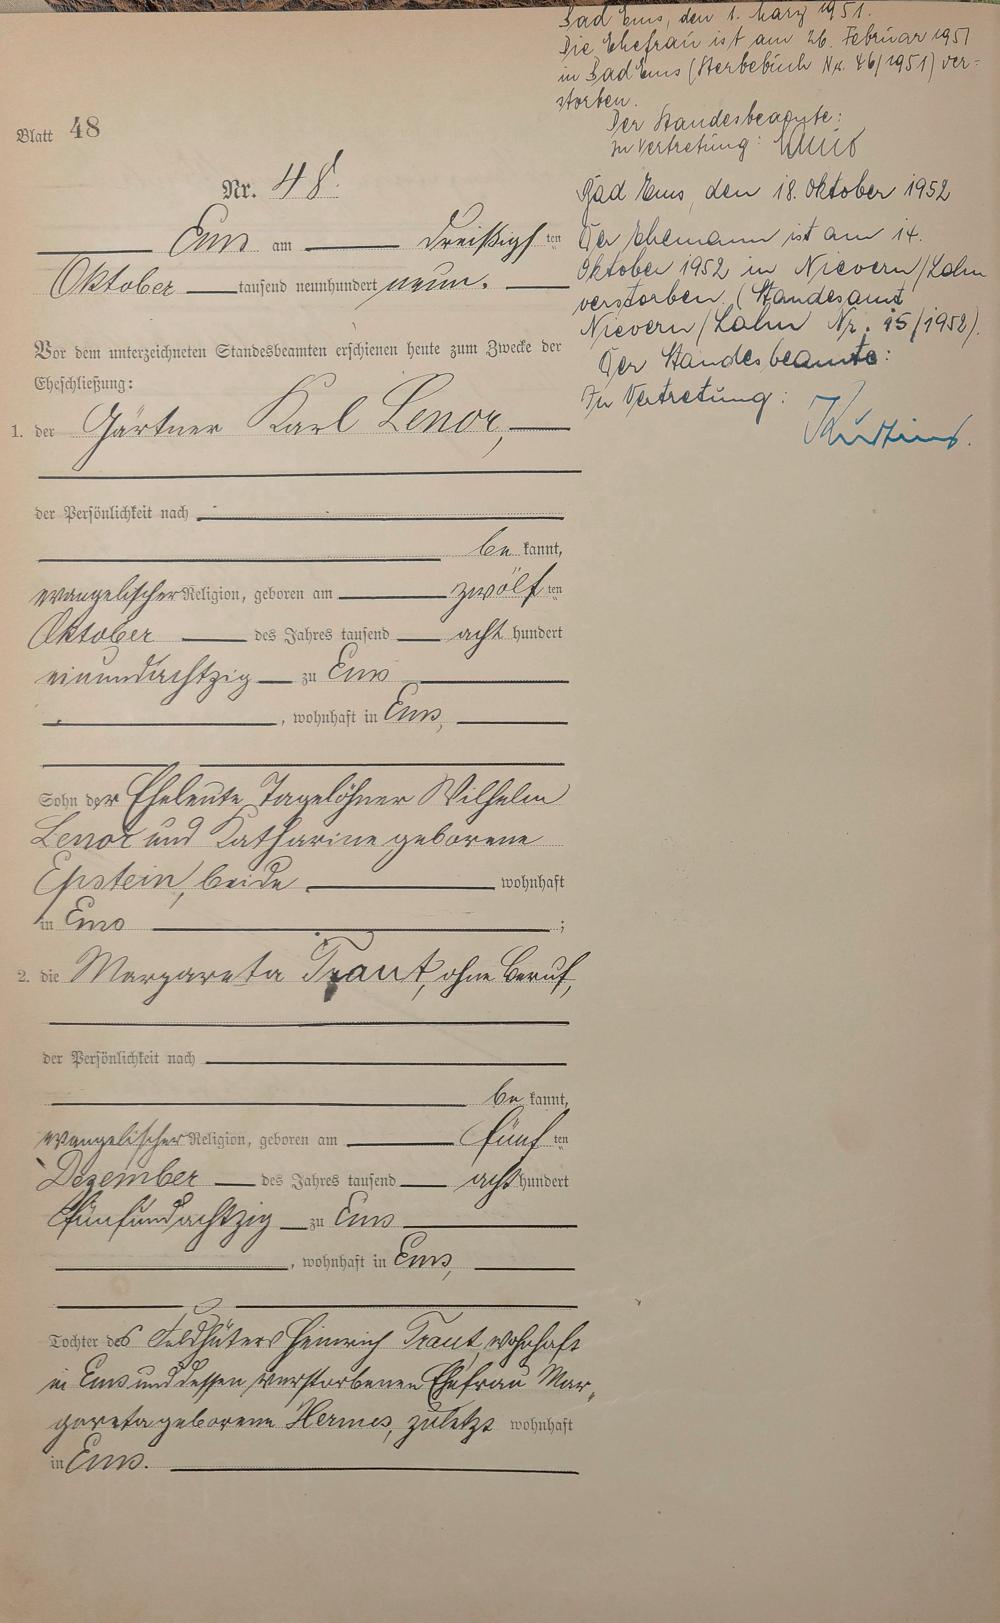 Bad Ems, den 1. März 1951.
Die Ehefrau ist am 26. Februar 1951
in Bad Ems (Sterbebuch Nr. 46/1951) ver-
storben.
Der Standesbeamte:
In Vertretung:
Blatt 48
Nr. 48.
Bad Ems, den 18. Oktober 1952
Der Ehemann ist am 14.
Oktober 1952 in Nievern/Lahn
verstorben. (Standesamt
Nievern/Lahn Nr. 15/1952).
Der Standesbeamte:
In Vertretung:
Ems am dreißigsten
Oktober tausend neunhundert neun.
Vor dem unterzeichneten Standesbeamten erschienen heute zum Zwecke der
Eheschließung:
1. der Gärtner Karl Lenor,
der Persönlichkeit nach
bekannt,
evangelischer Religion, geboren am zwölften
Oktober des Jahres tausend acht hundert
einundachtzig zu Ems
, wohnhaft in Ems,
Sohn der Eheleute Tagelöhner Wilhelm
Lenor und Katharine geborene
Epstein, beide wohnhaft
in Ems ;
2. die Margareta Traut, ohne Beruf,
der Persönlichkeit nach
bekannt,
evangelischer Religion, geboren am fünften
Dezember des Jahres tausend acht hundert
fünfundachtzig zu Ems
, wohnhaft in Ems,
Tochter des Feldhüters Heinrich Traut, wohnhaft
in Ems und dessen verstorbenen Ehefrau Mar-
gareta geborene Hermes, zuletzt wohnhaft
in Ems.